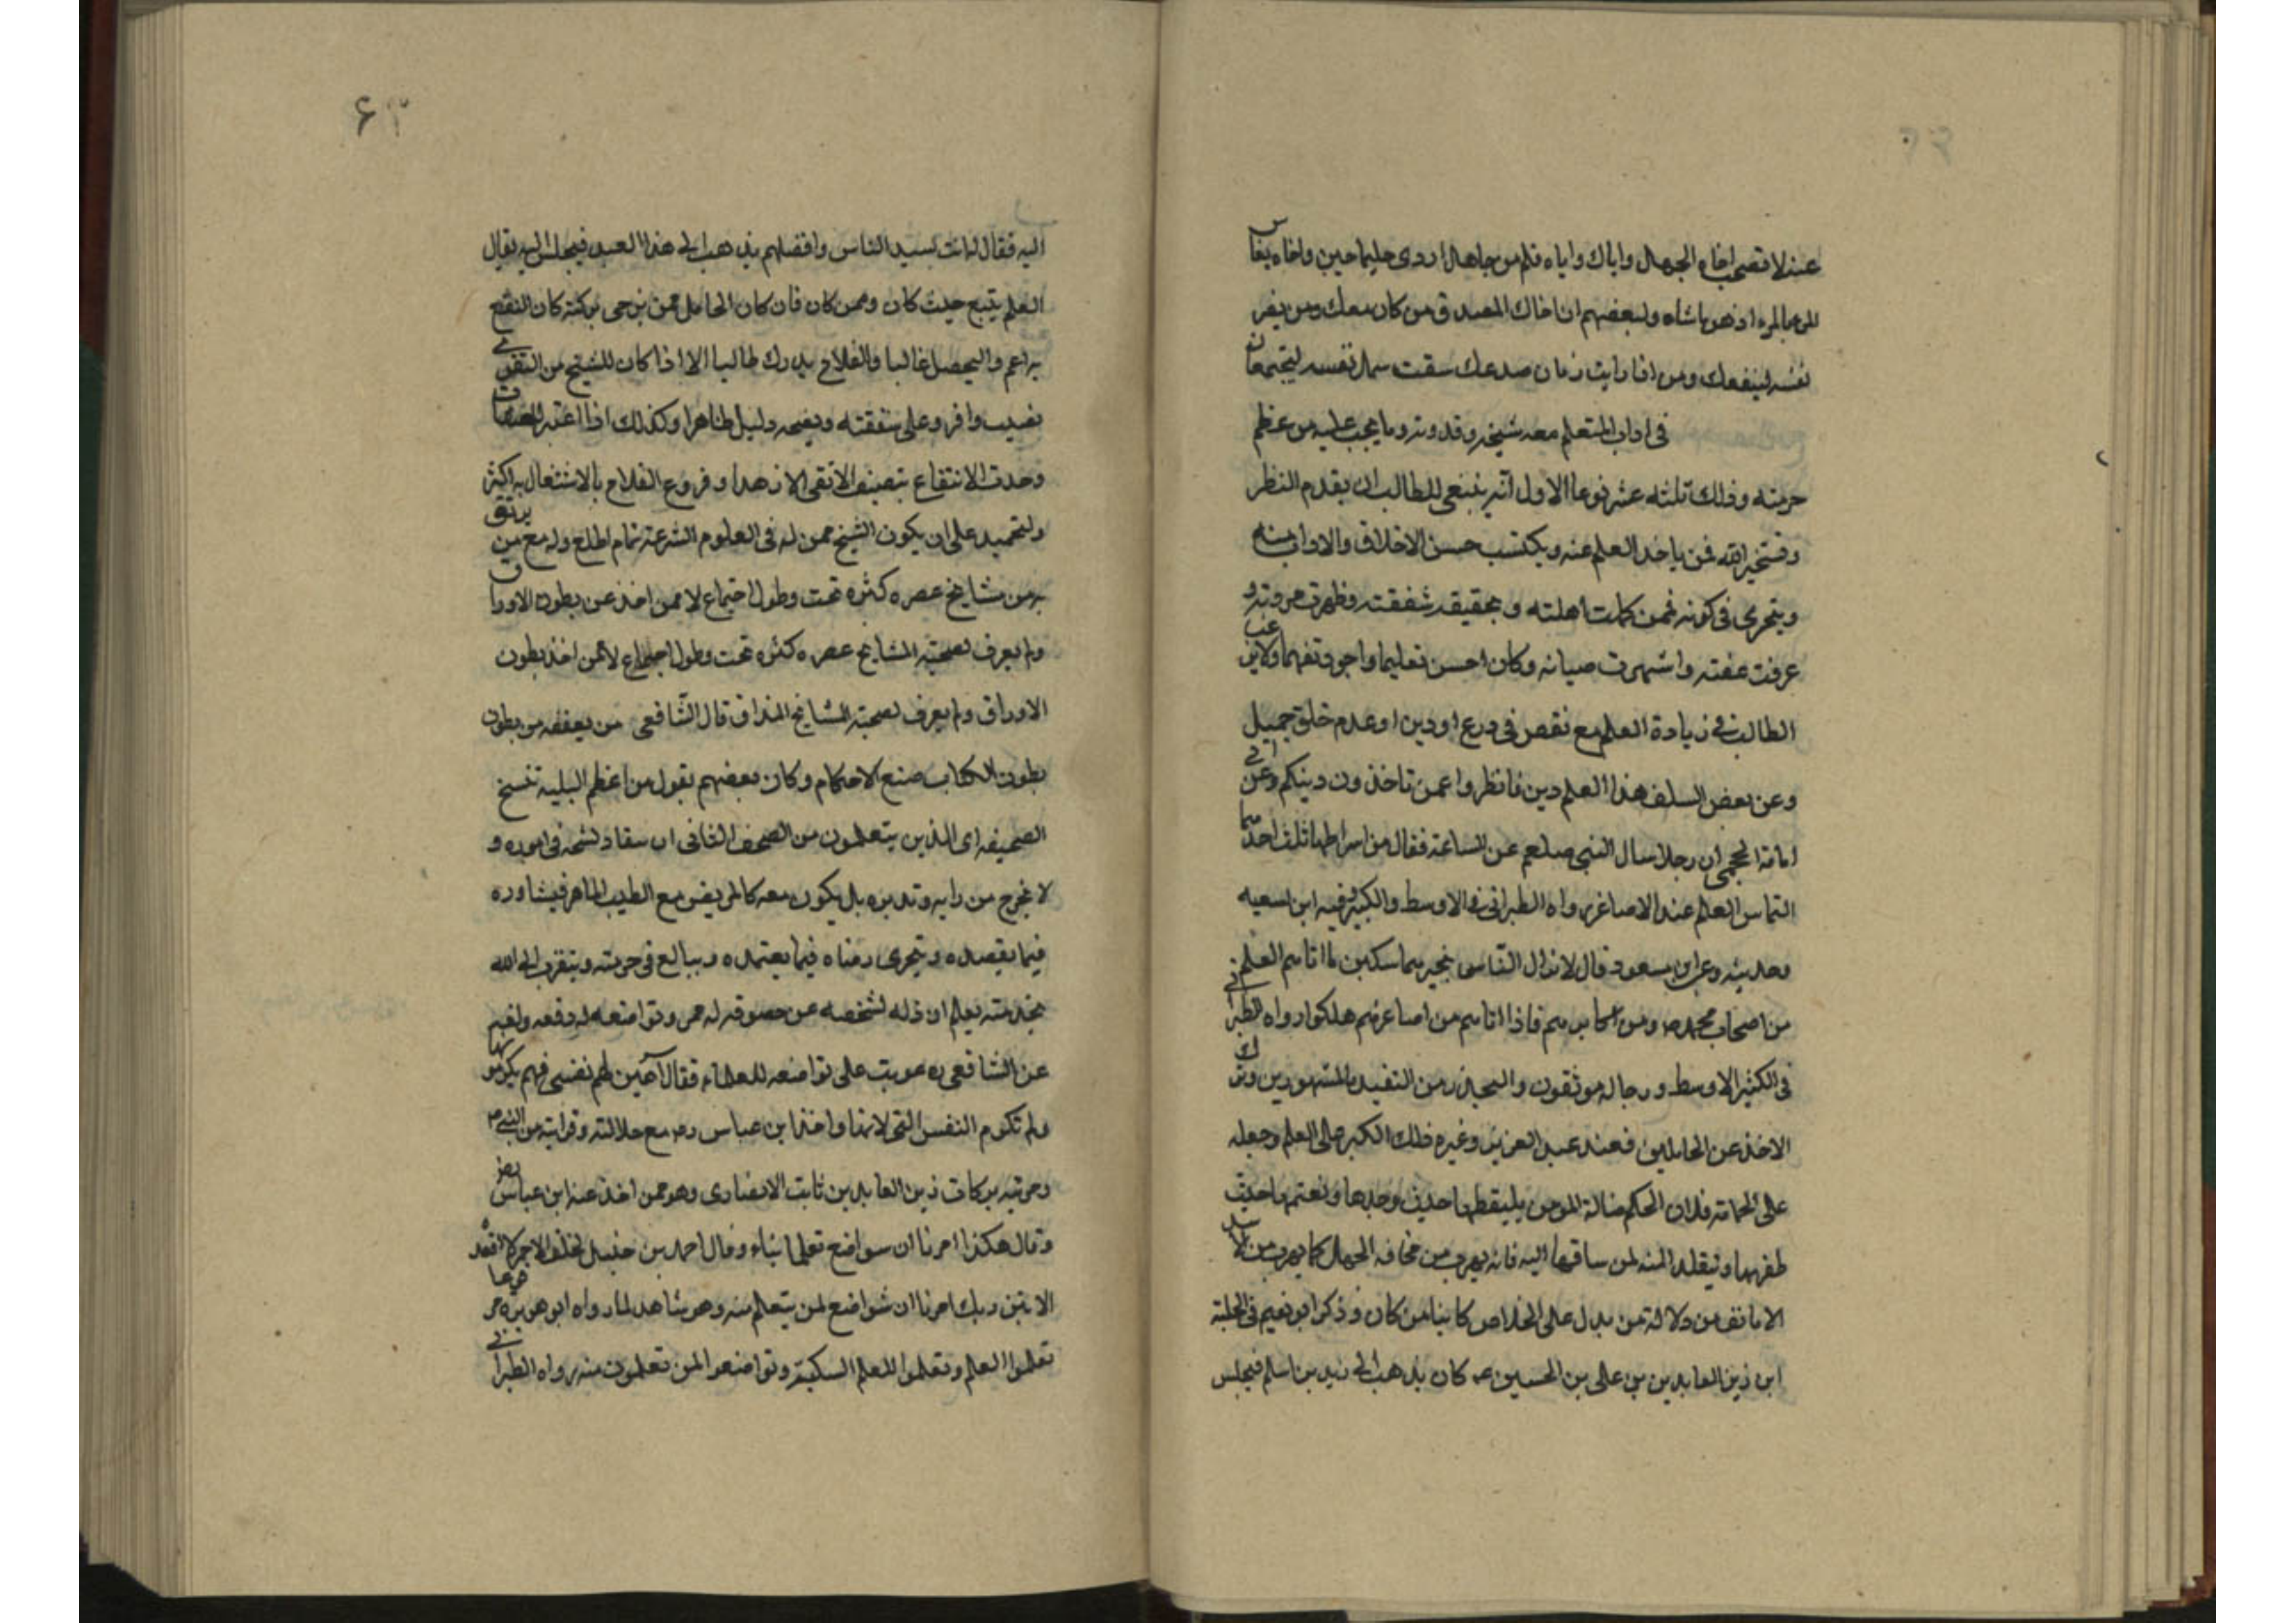 عنه لا تصحب اخا الجهال واياك واياه فلم من جاهل اردى حليما حين واخاه يقاس
المرء بالمرء اذ هو ماشاه ولبعضهم ان اخاك الصدق من كان معك ومن يضر
نفسه لينفعك ومن اذا رايت زمان صدعك شتت شمل نفسه ليجمعك
فى اداب المتعلم معه شيخه وقدوته وما يجب عليه من عظم
حرمته وذلك ثلثه عشر نوعا الاول انه ينبغى للطالب ان يقدم النظر
ويستخير الله فمن ياخذ العلم عنه ويكتسب حسن الاخلاق والاداب منه
ويتحرى فى كونه ممن كملت اهلته وتحقيقه شفقته وظهرت مروته و
عرفت عفته واشتهرت صيانه وكان احسن تعليما واجود تفهما ولا يرغب
الطالب فى زيادة العلم مع نقص فى ورع او دين او عدم خلق جميل
وعن بعض السلف هذا العلم دين فانظروا عمن تاخذون دينكم وعن ابى
امامة الجمحى ان رجلا سال النبى صلعم عن الساعة فقال من اشراطها ثلث احديها
التماس العلم عند الاصاغر رواه الطبرانى فى الاوسط والكبير وفيه ابن لهعيه
وحديثه وعن ابن مسعود قال لا يزال الناس بخير متماسكين ما اتاهم العلم
من اصحاب محمد ص ومن اكابرهم فاذا اتاهم من اصاغرهم هلكوا رواه الطبرانى
فى الكثير الاوسط ورجاله موثقون والحذر من التقييد بالمشهورين وترك
الاخذ عن الخاملين فعند عبد العزيز وغيره ذلك الكبر على العلم وجعله
على الحماقة فلان الحكم ضالة المومن يلتقطها حيث وجدها ويغتنم ما حيث
ظفر بها ويتقلد المنه لمن ساقها اليه فانه يهرب من مخافه الجهل كما يهرب من الاسد
الا ما تقف من دلالة من يدل على الخلاص كاينا من كان وذكر ابو نعيم فى الحلية
ابن زين العابدين بن على بن الحسين ع كان يذهب الى زيد بن اسلم فيجلس
اليه فقال له انت سيد الناس وافضلهم يذهب الى هذا العبد فيجلس اليه يقال
العلم يتبع حيث كان وممن كان فان كان الخامل ممن يرجى بركته كان النفع
به اعم والتحصل غالبا والفلاح يدرك طالبا الا اذا كان للشيخ من التقوى
نصيب وافر وعلى شفقته ونصحه دليل ظاهرا وكذلك اذا اعتبر المصنفات
وجدت الانتفاع بتصنيف الاتقى الازهدا وفروع الفلاح بالاشتغال به اكثر
وليجتهد على ان يكون الشيخ ممن له فى العلوم الشرعية تمام اطلع وله مع من يوثق
به من مشايخ عصره كثرة تحت وطول اجتماع لا ممن اخذ عن بطون الاوراق
ولم يعرف بصحبة المشايخ عصره كثره تحت وطول اجتماع لا ممن اخذ بطون
الاوراق ولم يعرف بصحبة المشايخ الحذاق قال الشافعى من تفقه من بطون
بطون الكتاب ضيع الاحكام وكان بعضهم يقول من اعظم البلية تشيخ
الصحيفه اى الذين يتعلمون من الصحف الثانى ان ينقاد لشيخه فى اموره و
لا يخرج من رايه وتدبيره بل يكون معه كالمريض مع الطبيب الماهر فيشاوره
فيما يقصده ويتحرى رضاه فيما يعتمده ويبالغ فى حرمته ويتقرب الى الله
بخدمته يعلم ان ذله لشيخه عز وخضوعه له فخر وتواضعه له رفعه
عن الشافعى ره عوتب على تواضعه للعلماء فقال اهين لهم نفسى فهم يكرمونها
ولم تكرم النفس التى لا تهنها واخذ ابن عباس رض مع جلالته وقرابته من النبى ص
ومرتبه بركاب زين العابدين ثابت الانصارى وهو ممن اخذ عنه ابن عباس رض
وقال هكذا امرنا ان نتواضع تعلمائناء وقال احمد بن حنبل لخلف الاحمر لا اقعد
الا بين يديك امرنا ان نتواضع لمن يتعلم منه وهو شاهد لما رواه ابو هريره
تعلموا العلم وتعلموا للعلم السكينة وتواضعوا لمن تعلمون منه رواه الطبرانى